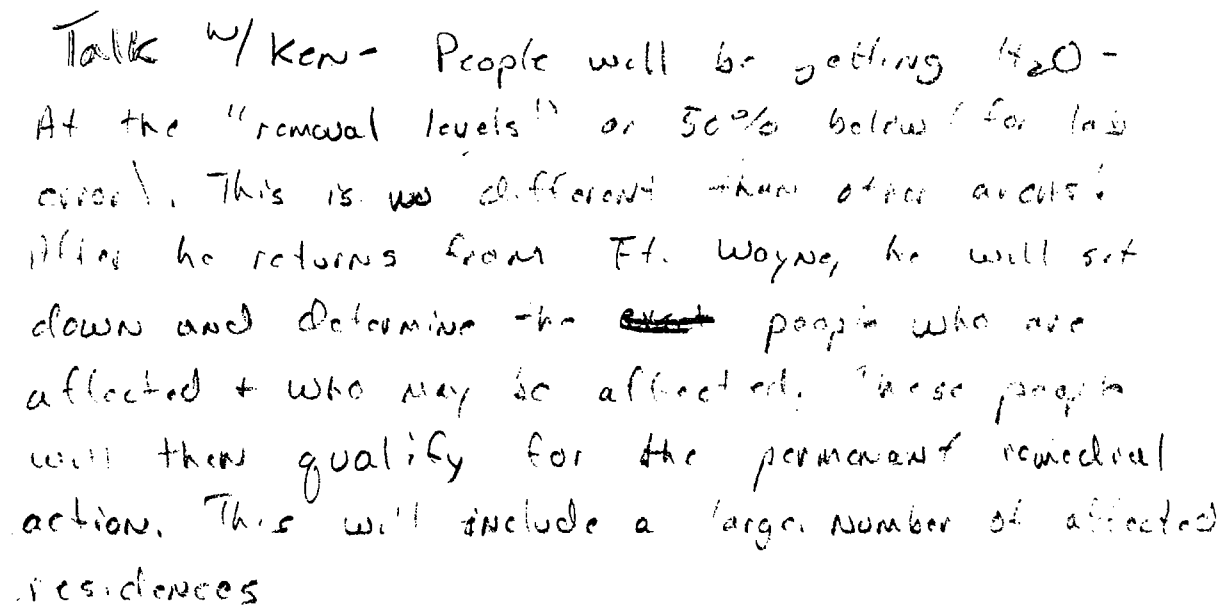 Talk w/ Ken - People will be getting H2O -
At the "removal levels" or 50% below (for lab
error). This is no different than other areas.
After he returns from Ft. Wayne, he will sit
down and determine the people who are
affected + who may be affected. These people
will then qualify for the permenant remedial
action. This will include a large number of affected
residences